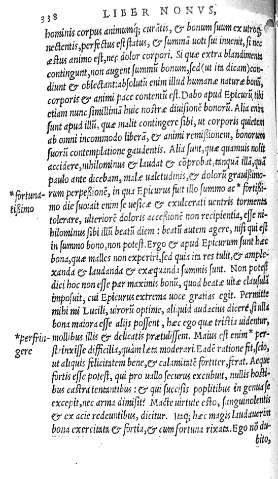 338 LIBER NONVS,
hominis corpus animumq; curatis, & bonum suum ex utroq;
nectentis, perfectus est status, & summā uoti sui inuenit, si nec
æstus animo est, nec dolor corpori. Si qua extra blandimenta
contingunt, non augent summū bonum, sed (ut ita dicam) con-
diunt & oblectant: absolutū enim illud humanæ naturæ bonū,
corporis & animi pace contentū est. Dabo apud Epicurū tibi
etiam nunc simillimā huic nostræ diuisionē bonorū. Alia enim
sunt apud illū, quæ malit contingere sibi, ut corporis quietem
ab omni incommodo liberā, & animi remissionem, bonorum
suorū contemplatione gaudentis. Alia sunt, quæ quamuis nolit
accidere, nihilominus & laudat & cōprobat, tanquā illā, quā
paulo ante dicebam, malæ ualetudinis, & dolorū grauissimo-
*fortuna-
rum perpeßionē, in qua Epicurus fuit illo summo ac * fortißi-
tissimo
mo die suo. ait enim se uesicæ & exulcerati uentris tormenta
tolerare, ulteriorē doloris acceßionē non recipientia, esse ni-
hilominus sibi illū beatū diem: beatū autem agere, nisi qui est
in summo bono, non potest. Ergo & apud Epicurum sunt hæc
bona, quæ malles non experiri, sed quia ita res tulit, & ample-
xanda & laudanda & exæquanda summis sunt. Non potest
dici hoc non esse par maximis bonū, quod beatæ uitæ clausulā
imposuit, cui Epicurus extrema uoce gratias egit. Permitte
mihi mi Lucili, uirorū optime, aliquid audacius dicere, si ulla
bona maiora esse alijs possent, hæc ego quæ tristia uidentur,
*perfrin-
mollibus illis & delicatis prætulissem. Maius est enim * per-
gere
st inisse difficilia, quàm læta moderari. Eadē ratione fit, scio,
ut aliquis felicitatem bene, & calamitatē fortiter, ferat. Aeque
fortis esse potest, qui pro uallo securus excubuit, nullis hosti-
bus castra tentantibus: & qui succisis poplitibus in genua se
excepit, nec arma dimisit. Macte uirtute esto, sanguinolentis
& ex acie redeuntibus, dicitur. Itaq; hæc magis laudauerim
bona exercitata & fortia, & cum fortuna rixata. Ego nō du-
bito,